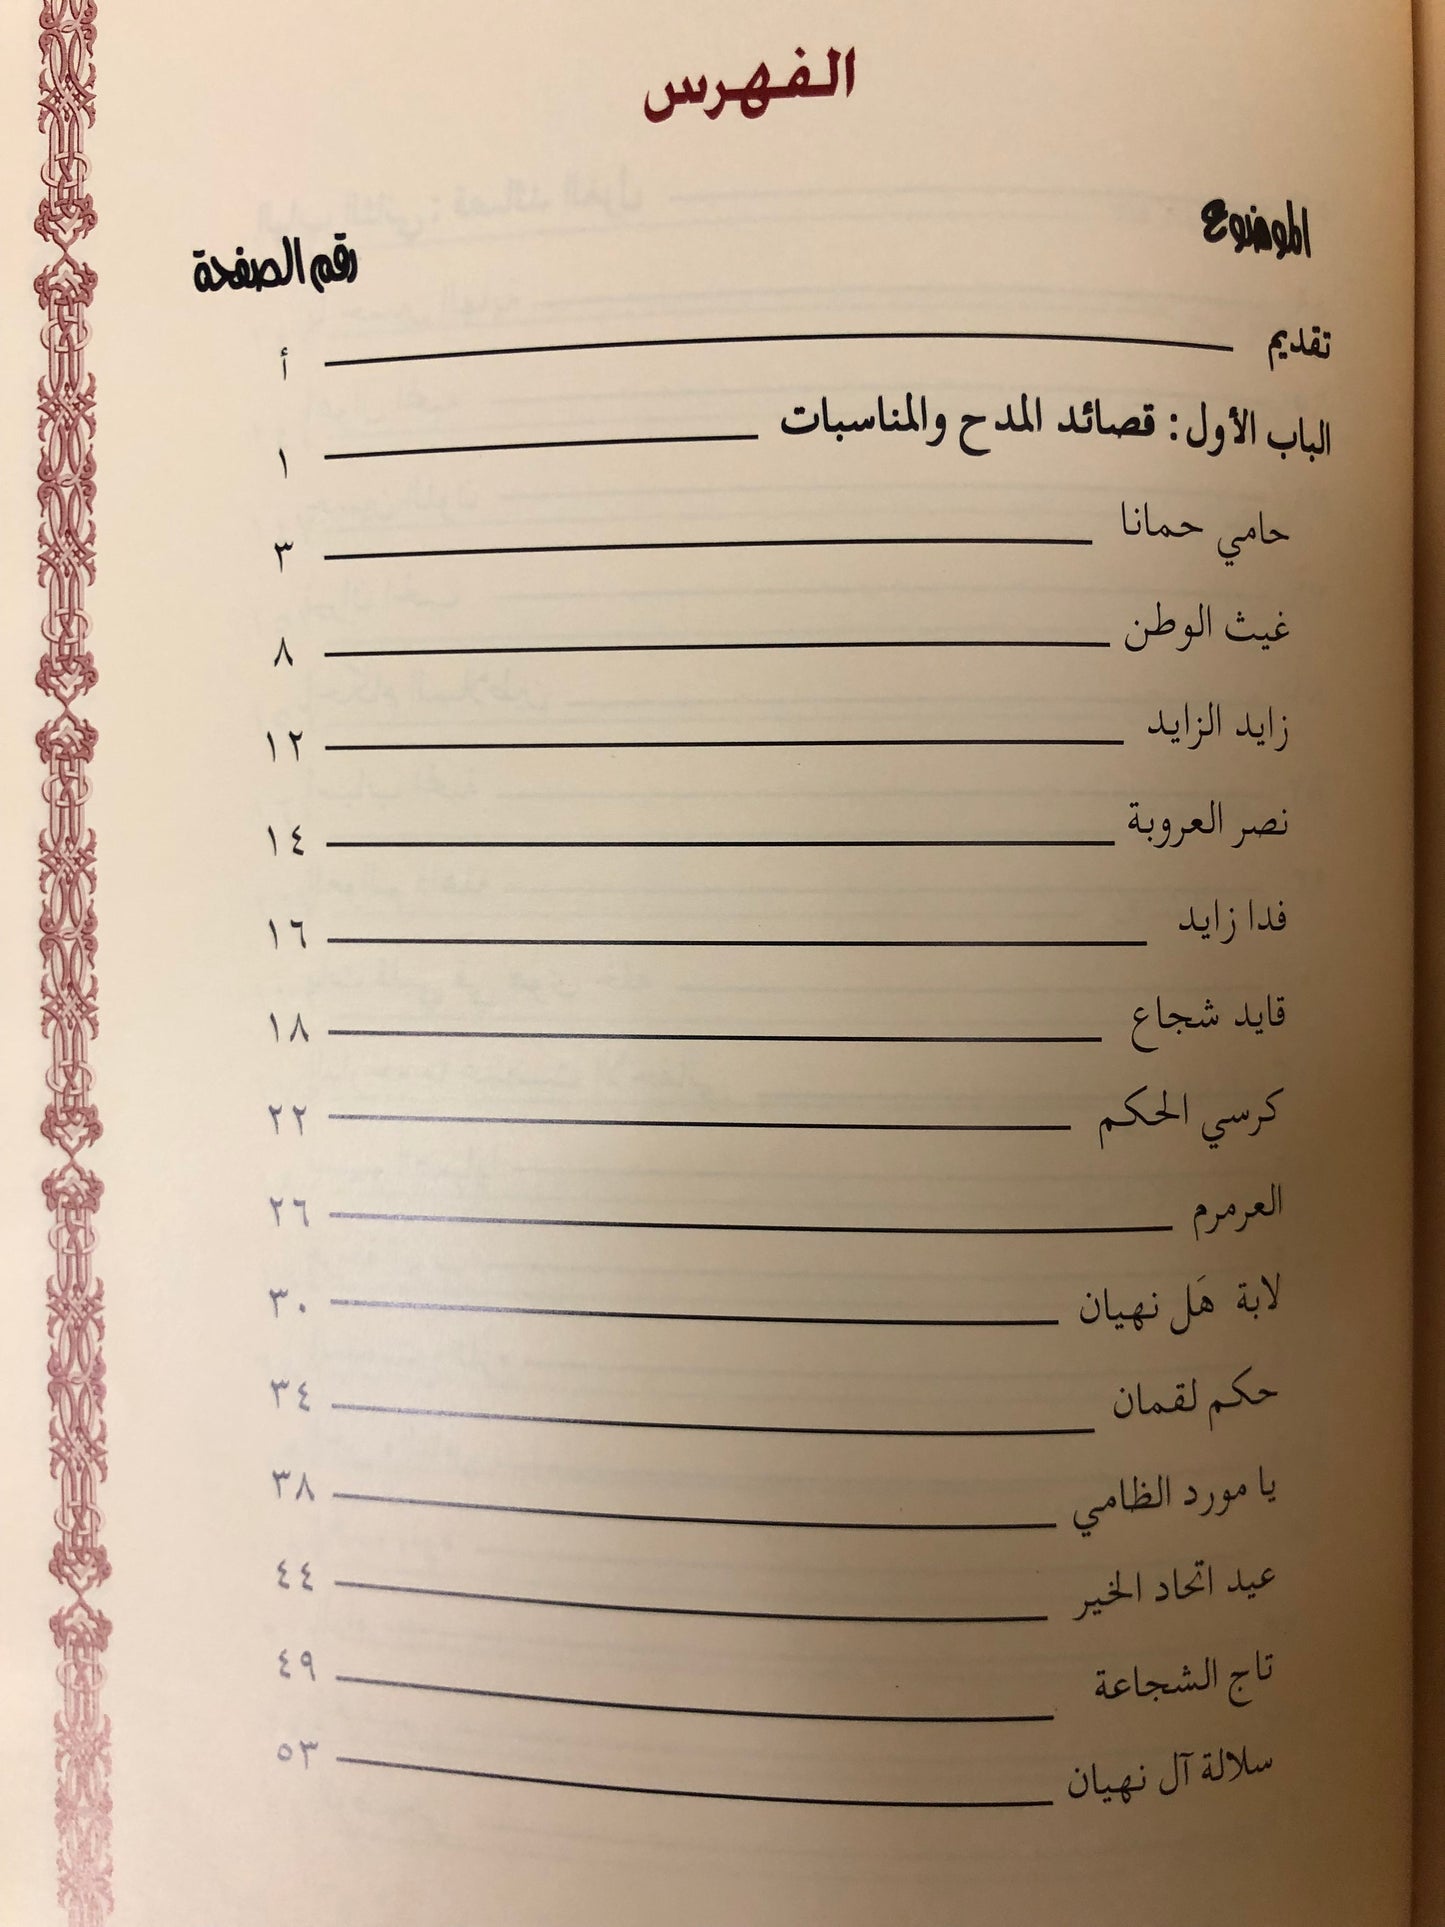 الفهرس
الموضوع رقم الصفحة
تقديم أ
الباب الأول: قصائد المدح والمناسبات ١
حامي حمانا ٣
غيث الوطن ٨
زايد الزايد ١٢
نصر العروبة ١٤
فدا زايد ١٦
قايد شجاع ١٨
كرسي الحكم ٢٢
العرمرم ٢٦
لابة هَل نهيان ٣٠
حكم لقمان ٣٤
يا مورد الظامي ٣٨
عيد اتحاد الخير ٤٤
تاج الشجاعة ٤٩
سلالة آل نهيان ٥٣